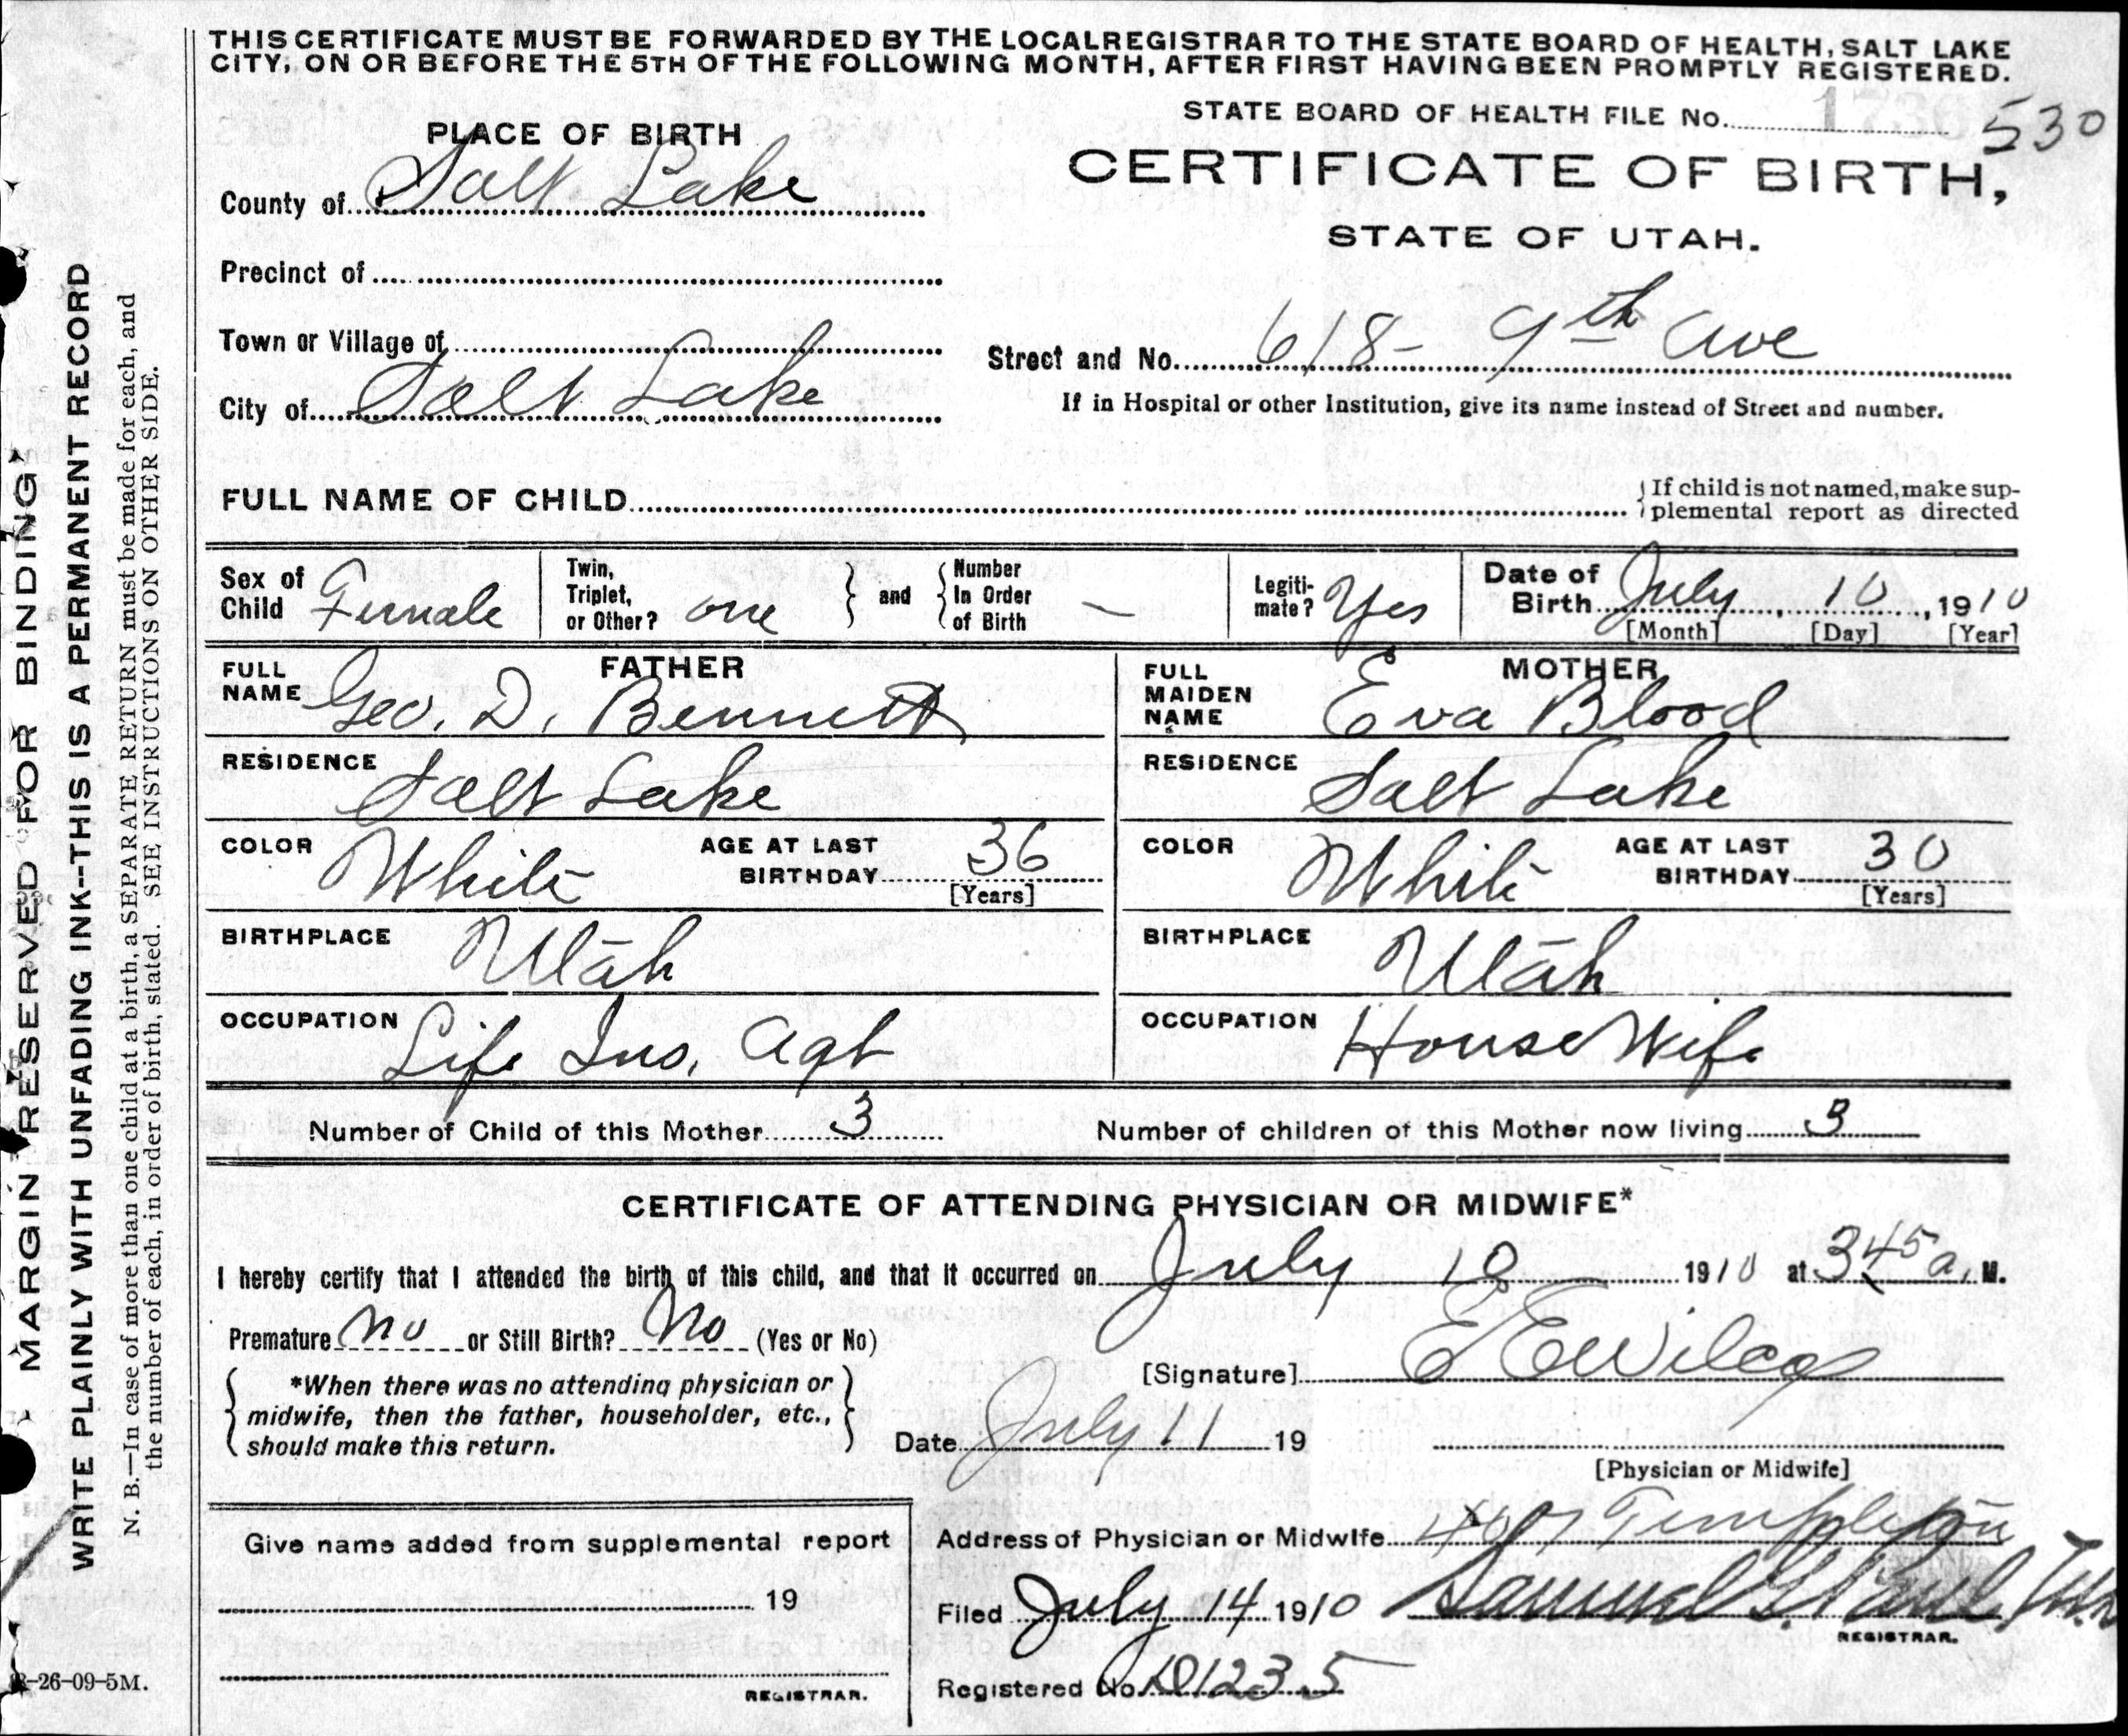 THIS CERTIFICATE MUST BE FORWARDED BY THE LOCAL REGISTRAR TO THE STATE BOARD OF HEALTH, SALT LAKE
CITY, ON OR BEFORE THE 5TH OF THE FOLLOWING MONTH, AFTER FIRST HAVING BEEN PROMPTLY REGISTERED.
STATE BOARD OF HEALTH FILE No. 530
PLACE OF BIRTH
CERTIFICATE OF BIRTH,
County of Salt Lake
STATE OF UTAH.
Precinct of
Town or Village of
Street and No. 618- 9th Ave
City of Salt Lake
If in Hospital or other Institution, give its name instead of Street and number.
FULL NAME OF CHILD
{If child is not named, make sup-
plemental report as directed
Sex of Child Female
Twin, Triplet, or Other? one } and { Number In Order of Birth —
Legiti-mate? Yes
Date of Birth July, 10, 1910
[Month] [Day] [Year]
FATHER
FULL NAME Geo. D. Bennett
MOTHER
FULL MAIDEN NAME Eva Blood
RESIDENCE Salt Lake
RESIDENCE Salt Lake
COLOR White AGE AT LAST BIRTHDAY 36 [Years]
COLOR White AGE AT LAST BIRTHDAY 30 [Years]
BIRTHPLACE Utah
BIRTHPLACE Utah
OCCUPATION Life Ins. Agt
OCCUPATION House Wife
Number of Child of this Mother 3 Number of children of this Mother now living 3
CERTIFICATE OF ATTENDING PHYSICIAN OR MIDWIFE*
I hereby certify that I attended the birth of this child, and that it occurred on July 10 1910 at 345 a. M.
Premature No or Still Birth? No (Yes or No)
[Signature] E E Wilcox
*When there was no attending physician or
midwife, then the father, householder, etc.,
should make this return.
Date July 11 19
[Physician or Midwife]
Give name added from supplemental report
19
REGISTRAR.
Address of Physician or Midwife 407 Templeton
Filed July 14 1910 Samuel G. Paul
REGISTRAR.
Registered No. 1235
MARGIN RESERVED FOR BINDING
WRITE PLAINLY WITH UNFADING INK--THIS IS A PERMANENT RECORD
N. B.—In case of more than one child at a birth, a SEPARATE RETURN must be made for each, and
the number of each, in order of birth, stated. SEE INSTRUCTIONS ON OTHER SIDE.
-26-09-5M.